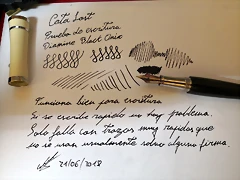 Cata Lost
Prueba de escritura
Diamine Black Onix
Funciona bien para escritura
Si se escribe rapido no hay problema.
Solo falla con trazos muy rapidos que
no se usan usualmente salvo alguna firma.
21/06/2018